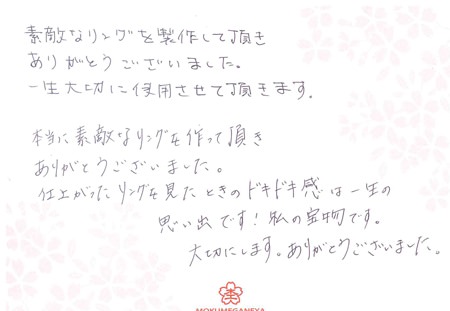 素敵なリングを製作して頂き
ありがとうございました。
一生大切に使用させて頂きます。
本当に素敵なリングを作って頂き
ありがとうございました。
仕上がったリングを見たときのドキドキ感は一生の
思い出です！私の宝物です。
大切にします。ありがとうございました。
MOKUMEGANEYA